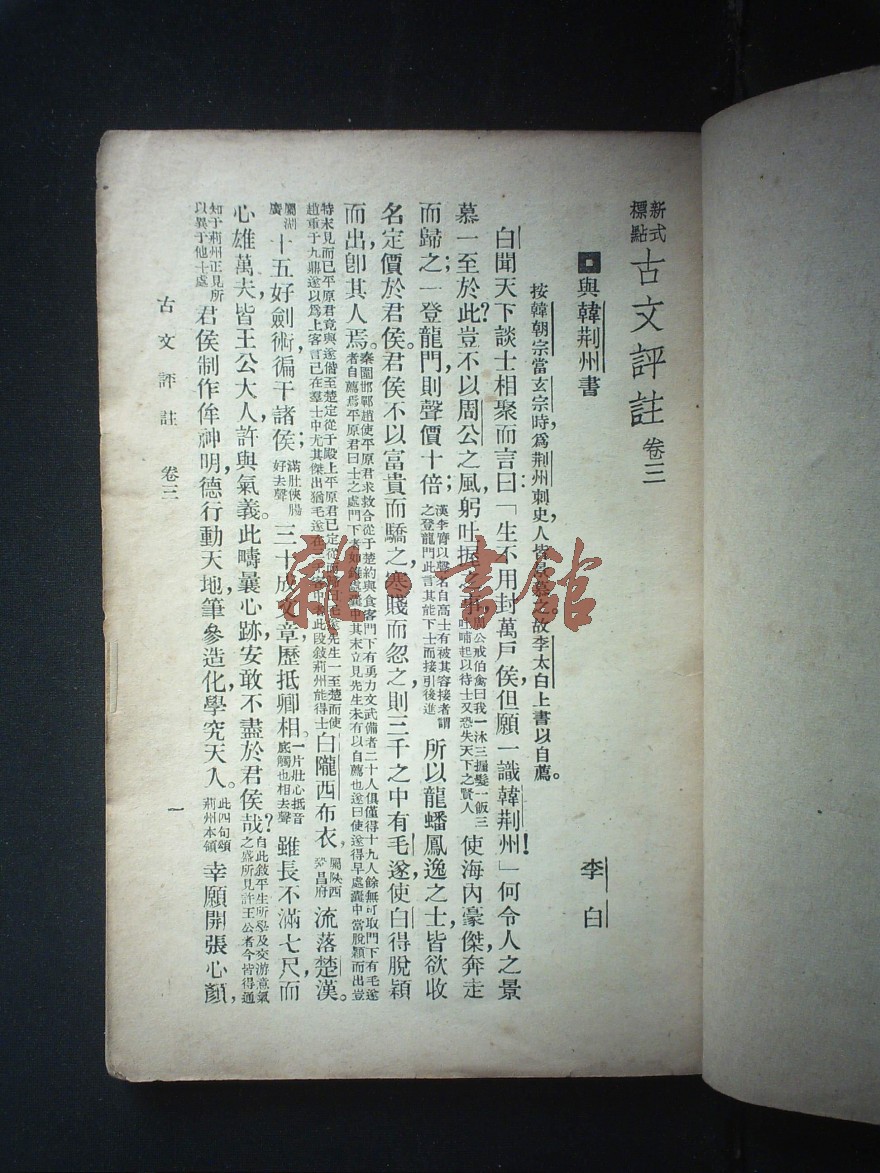 新式標點 古文評註 卷三
與韓荆州書
李白
按韓朝宗當玄宗時爲荆州刺史人皆景慕之故李太白上書以自薦。
白聞天下談士相聚而言曰：「生不用封萬戶侯，但願一識韓荆州！」何令人之景
慕一至於此？豈不以周公之風，躬吐握之事，周公戒伯禽曰我一沐三握髮一飯三吐哺起以待士又恐失天下之賢人 使海內豪傑，奔走
而歸之；一登龍門，則聲價十倍；漢李膺以聲名自高士有被其容接者謂之登龍門此言其能下士而接引後進 所以龍蟠鳳逸之士，皆欲收
名定價於君侯。君侯不以富貴而驕之，寒賤而忽之，則三千之中有毛遂，使白得脫穎
而出，卽其人焉。秦圍邯鄲趙使平原君求救合從于楚約與食客門下有勇力文武備者二十人俱僅得十九人餘無可取門下有毛遂者自薦焉平原君曰士之處門下者如錐處囊中其末立見先生未有以自薦也遂曰使遂得早處囊中當脫穎而出豈
特末見而已平原君竟與遂偕至楚定從于殿上平原君已定從而歸曰毛先生一至楚而使趙重于九鼎遂以爲上客言己在羣士中尤其傑出猶毛遂在三千客中也此段敍荆州能得士 白隴西布衣，屬陝西鞏昌府 流落楚漢。
屬湖廣 十五好劍術，徧干諸侯；滿肚俠腸好去聲 三十成文章，歷抵卿相。一片壯心抵音底觸也相去聲 雖長不滿七尺，而
心雄萬夫，皆王公大人，許與氣義。此疇曩心跡，安敢不盡於君侯哉？自此敍平生所學及交游意氣之盛所見許王公者今皆得通
知于荆州正見所以異于他士處 君侯制作侔神明，德行動天地，筆參造化，學究天人。此四句頌荆州本領 幸願開張心顏，
古文評註 卷三
一
雜·書館